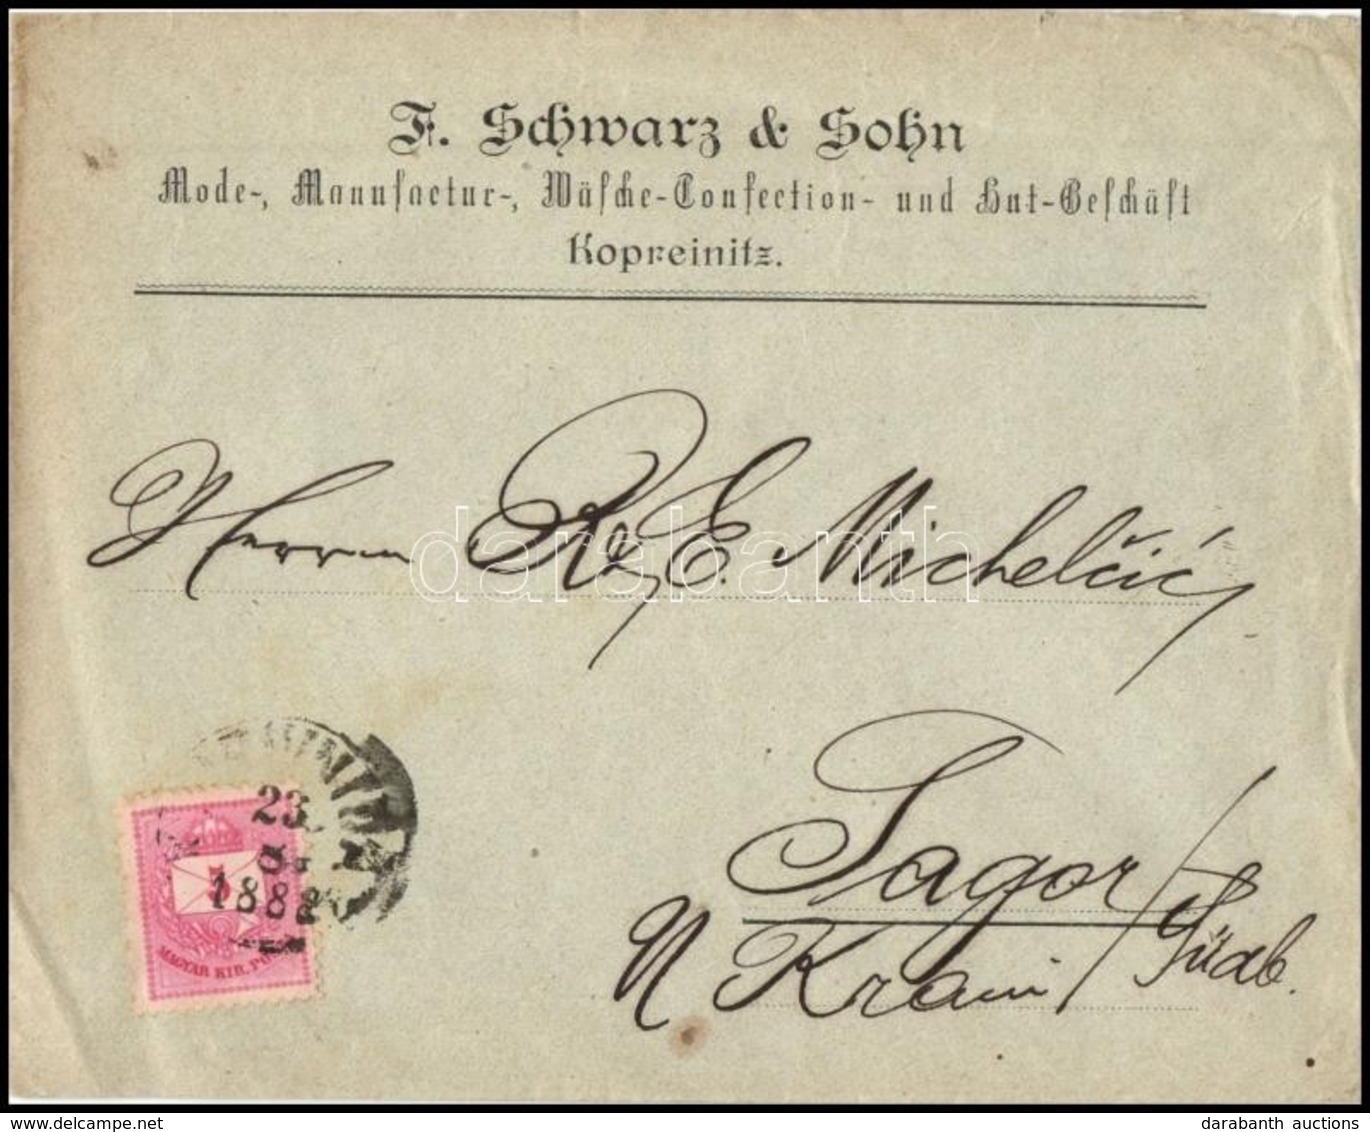 F. Schwarz & Sohn
Mode-, Manufactur-, Wäsche-Confection- und Hut-Geschäft
Kopreinitz.
Herrn E. Michelčić
darabanth
23
188
5
MAGYAR KIR. PO
Sagor / Südb.
N Krain
www.delcampe.net
darabanth auctions